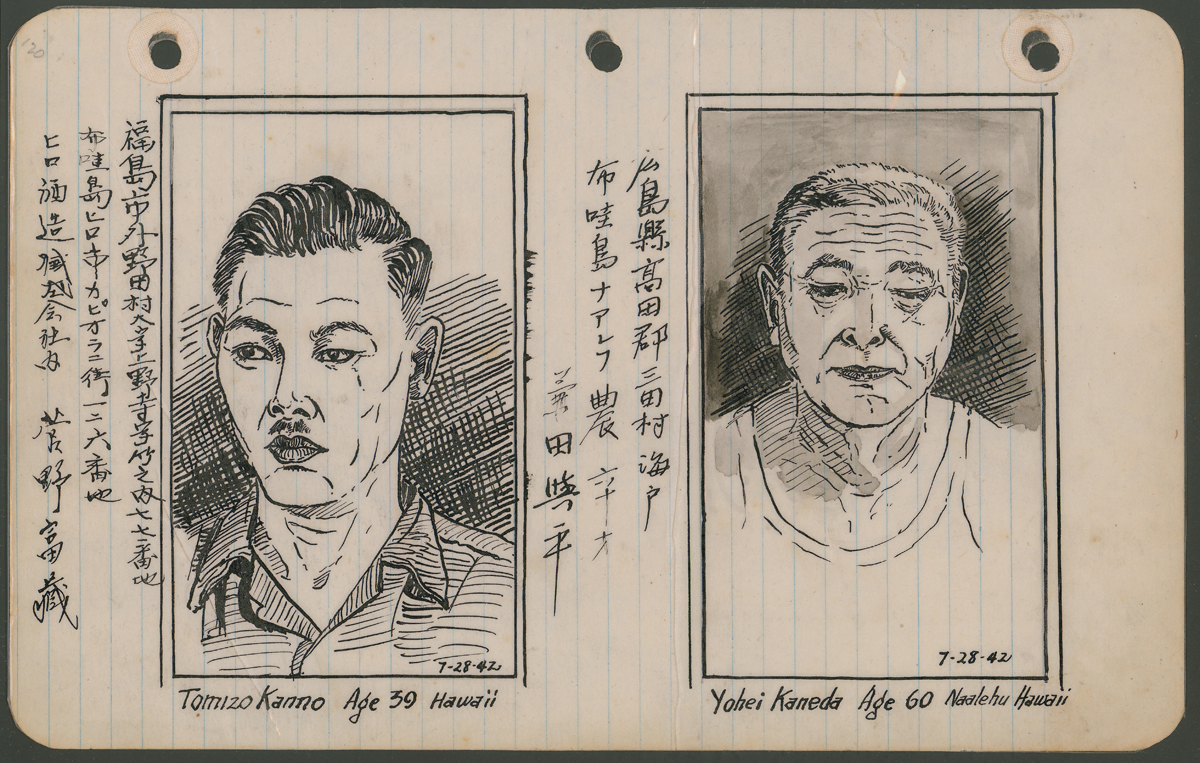 120
福島市外野田村大字上野寺字竹之内七七番地
布哇島ヒロ市カピオラニ街一二六番地
ヒロ酒造株式会社内 菅野富藏
7-28-42
Tomizo Kanno Age 39 Hawaii
広島縣高田郡三田村海戸
布哇島ナアレフ 農 六十才
兼田與平
7-28-42
Yohei Kaneda Age 60 Naalehu Hawaii